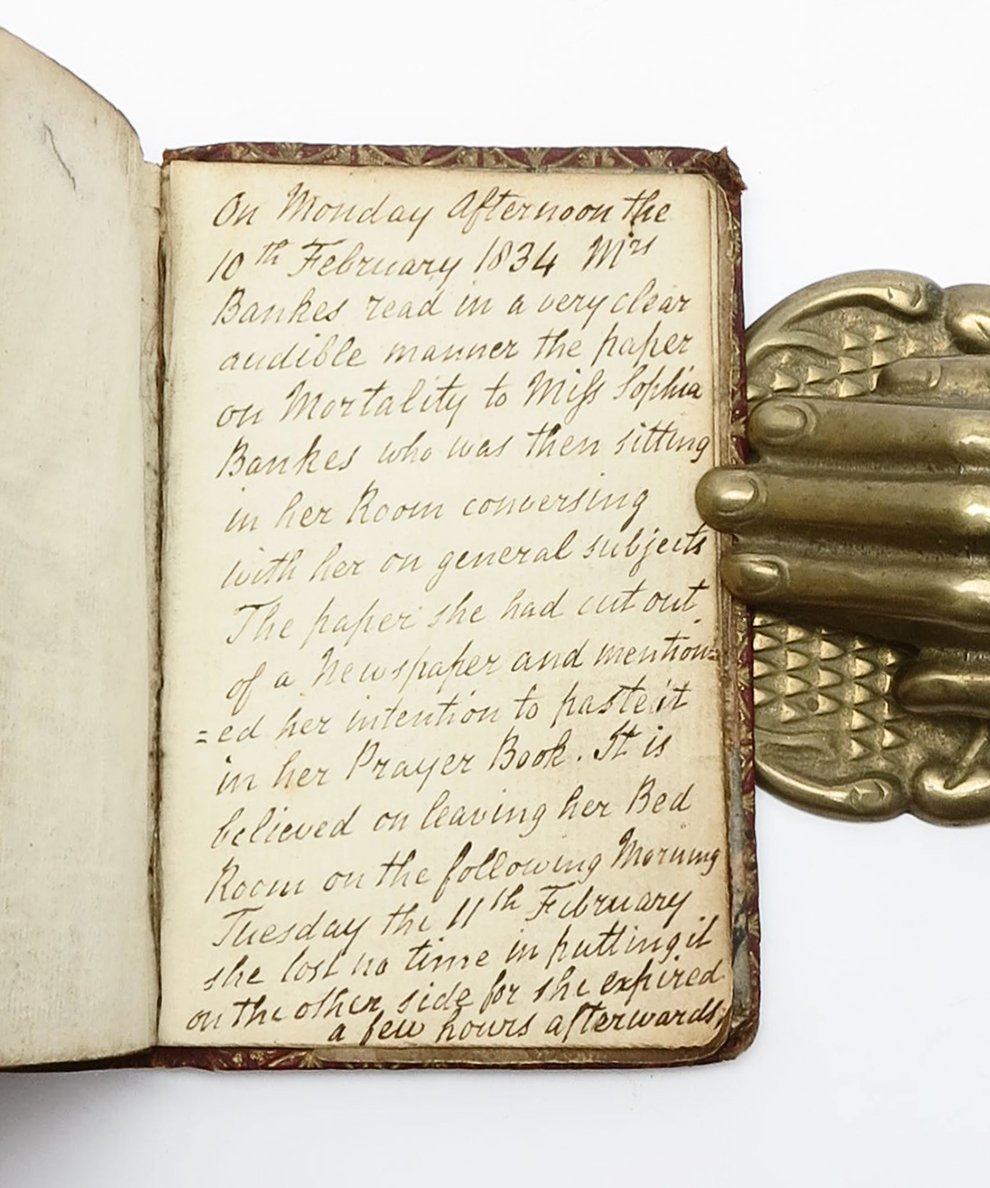 On Monday Afternoon the
10th February 1834 Mrs
Bankes read in a very clear
audible manner the paper
on Mortality to Miſs Sophia
Bankes who was then sitting
in her Room conversing
with her on general subjects
The paper she had cut out
of a Newspaper and mention=
=ed her intention to paste it
in her Prayer Book. It is
believed on leaving her Bed
Room on the following Morning
Tuesday the 11th February
she lost no time in putting it
on the other side for she expired
a few hours afterwards,